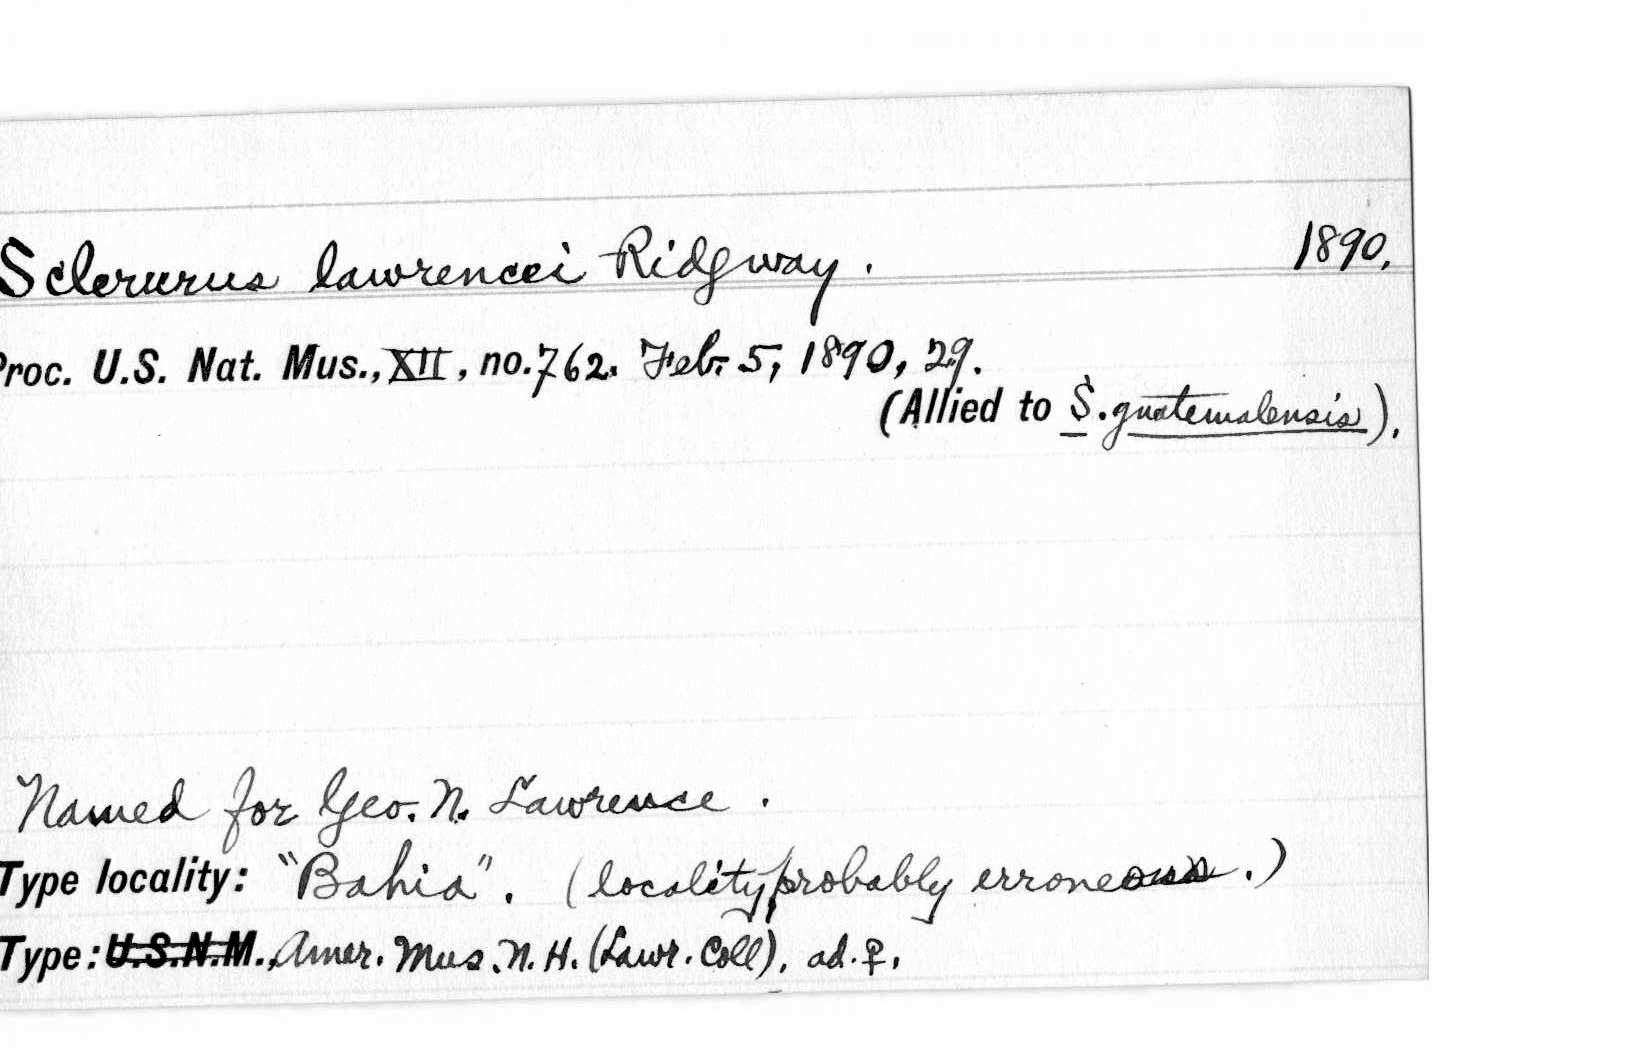 Sclerurus lawrencei Ridgway. 1890.
Proc. U.S. Nat. Mus., XII, no. 762. Feb. 5, 1890, 29.
(Allied to S. guatemalensis).
Named for Geo. N. Lawrence.
Type locality: "Bahia". (locality probably erroneous.)
Type: U.S.N.M., Amer. Mus. N. H. (Lawr. Coll), ad. ♀.